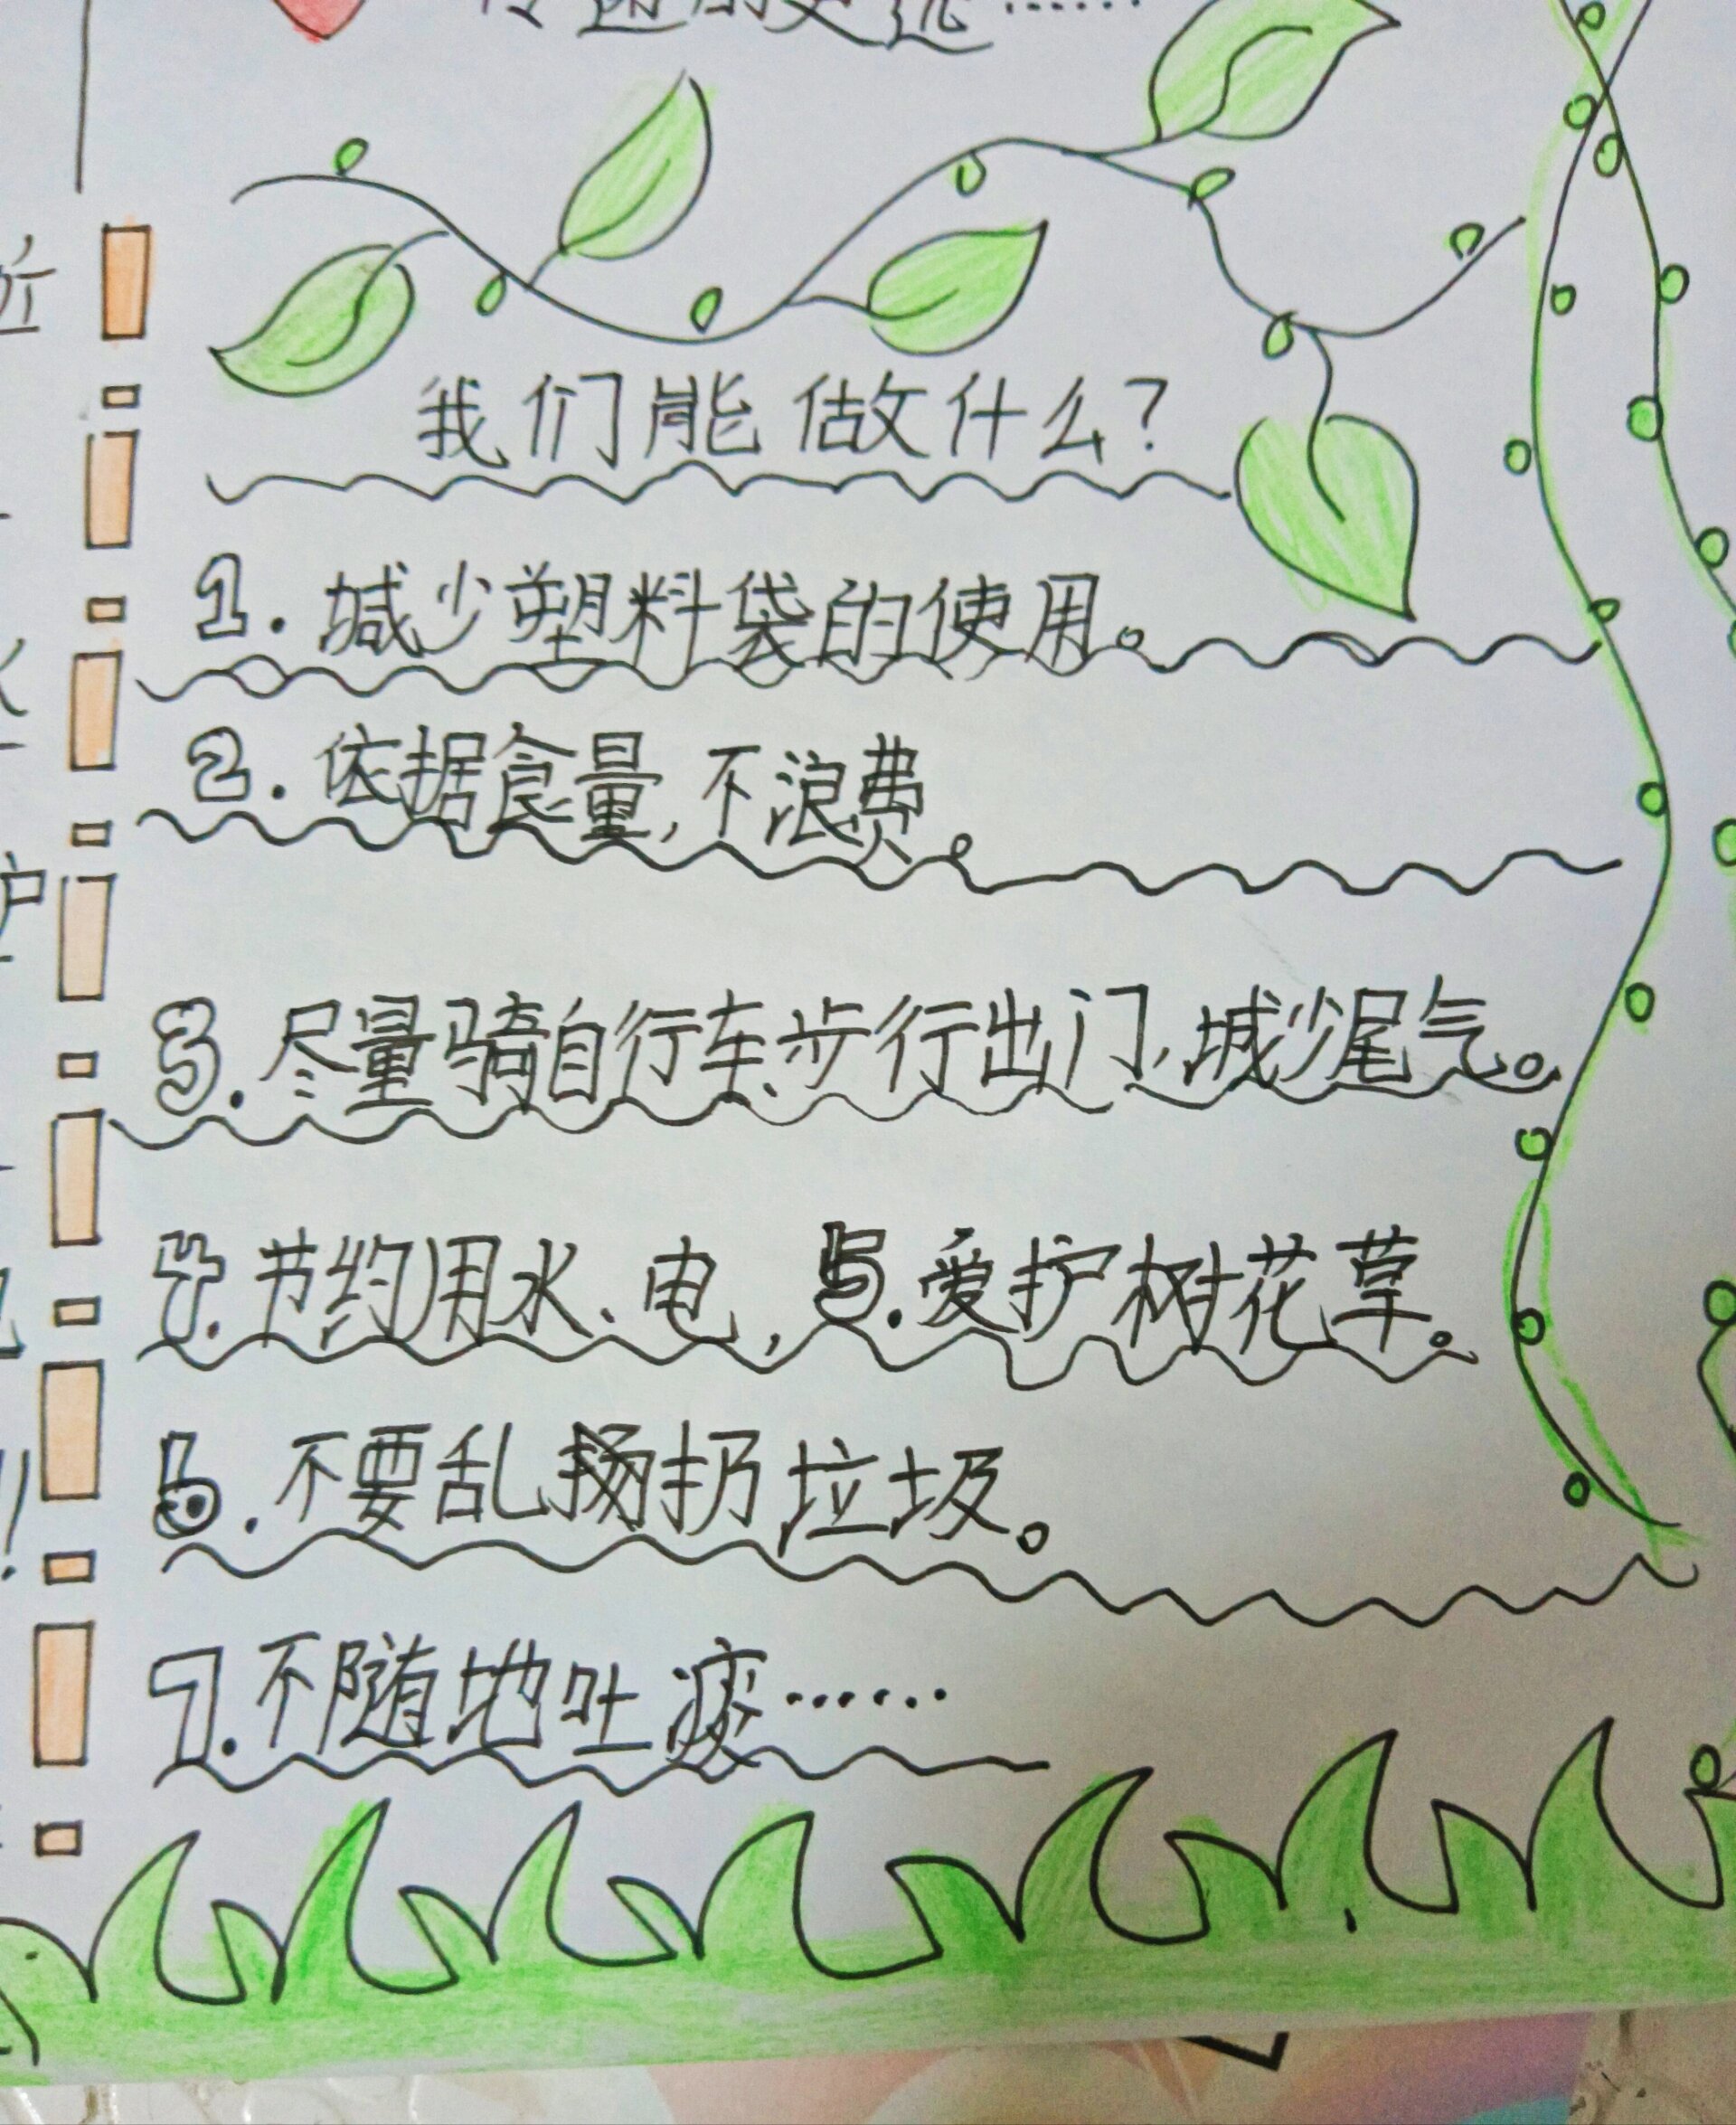 我们能做什么?
1. 减少塑料袋的使用。
2. 依据食量,不浪费。
3. 尽量骑自行车、步行出门,减少尾气。
4. 节约用水、电, 5. 爱护树花草。
6. 不要乱扔垃圾。
7. 不随地吐痰……